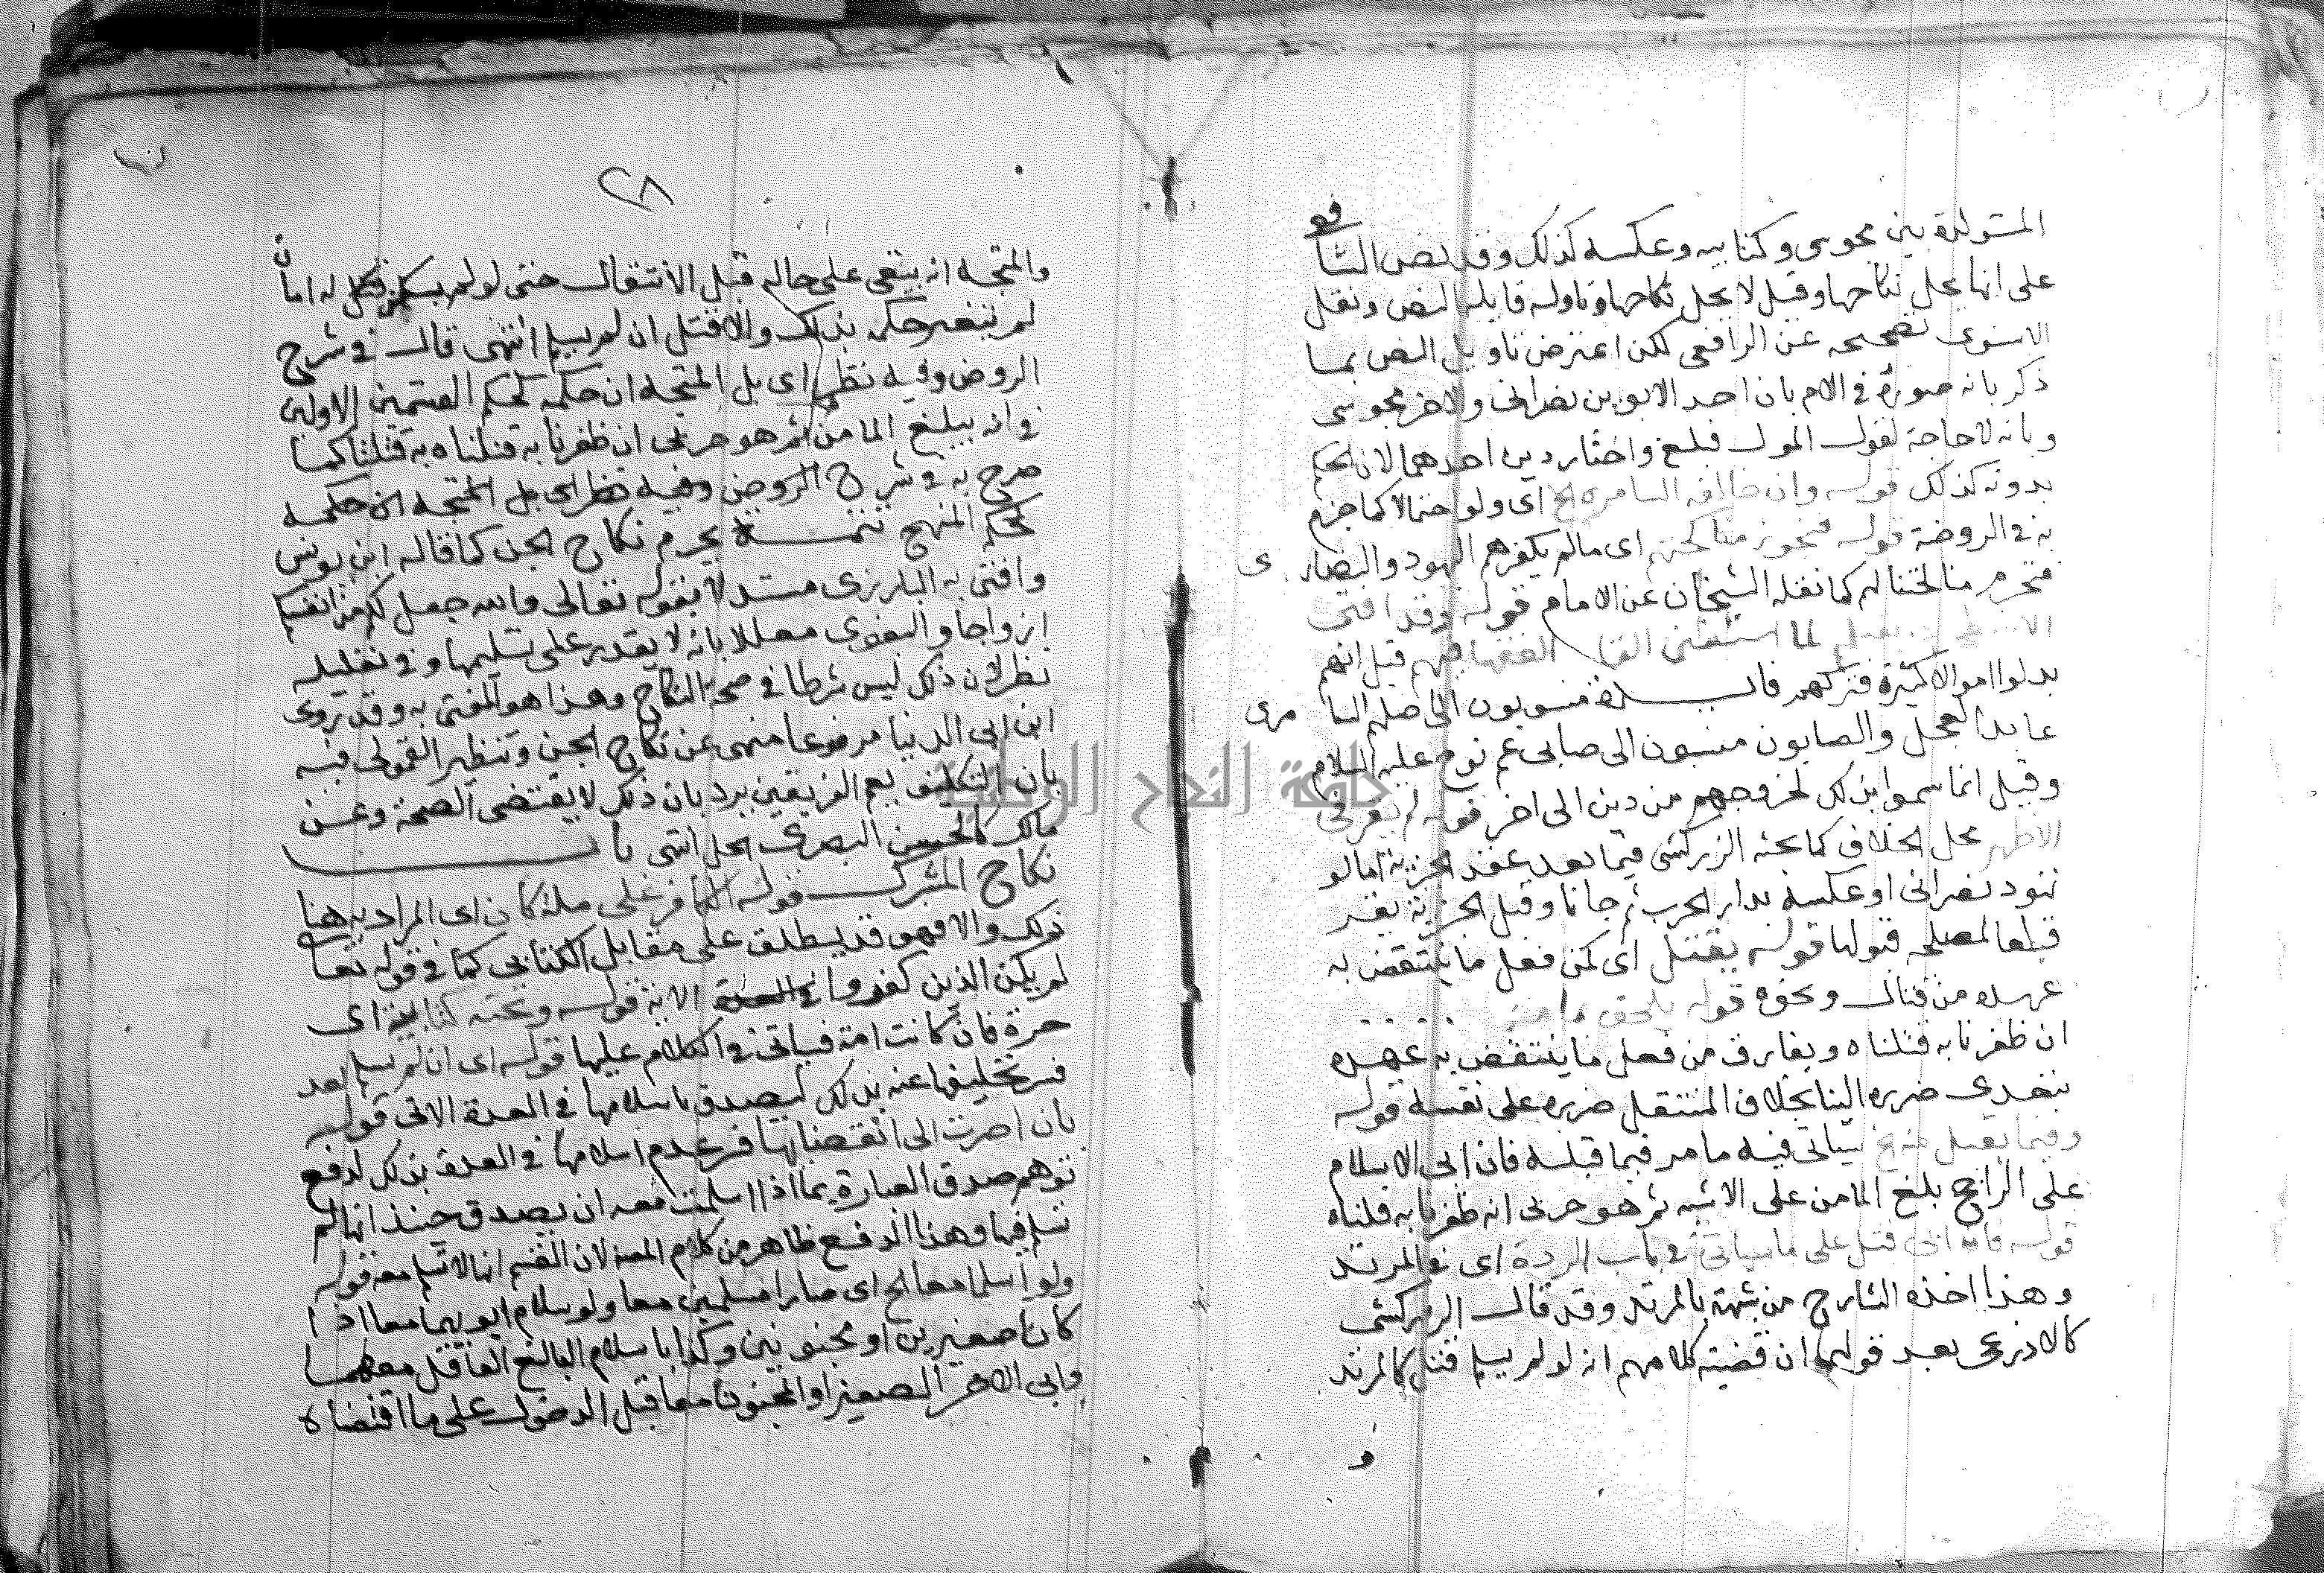 المتولدة بين مجوسى وكتابيه وعكسه كذلك وقد نص الشافعى
على انها يحل نكاحها وقيل لا يحل نكاحها وتاوله قايله النص ونقل
الاسنوى تصحيحه عن الرافعى لكن اعترض تاويل النص بما
ذكر بانه صورة فى الام بان احد الابوين نصرانى والاخر مجوسى
وبانه لا حاجة لقول المول فبلغ واختار دين احدهما لان الحكم
بدونه كذلك قوله وان خالفه السامره الخ اى ولو احتمالا كما جزم
به فى الروضة قوله فتجوز مناكحتهم اى مالم يكفرهم اليهود والنصارى
فتحرم مناكحتنا لهم كما نقله الشيخان عن الامام قوله وقد افتى
لما استفتى الفقها فيهم قيل انهم
بدلوا اموالا كثيرة فتركهم فايـــدة منسوبون الى اصلهم السامرى
عابد العجل والصابون منسبون الى صابى عم نوح عليه السلام
وقيل انما سموا بذلك لخروجهم من دين الى اخر قوله لم يقر فى
الاظهر محل الخلاف كما بحثه الزركشى فيما بعد عقد الجزية اما لو
تهود نصرانى او عكسه بدار الحرب ثم جانا وقبل الجزية يقر
قبلها لمصلحه قبولها قوله يقتل اى لمن فعل ما ينتقض به
عهده من قتال ونحوه قوله يلحق مامنه
ان ظفرنا به قتلناه ويفارق من فعل ما ينتقض به عهده
بتعدى ضرره الينا بخلاف المنتقل ضرره على نفسه قوله
وفيما يقبل منه الخ سياتى فيه ما مر فيما قبله فان ابى الاسلام
على الراجح بلغ المامن على الاشبه ثم هو حربى انه ظفرنا به قلناه
قوله فان ابى قتل على ما سياتى فى باب الردة اى فى المرتد
وهذا اخذه الشارح من شبهته بالمرتد وقد قال الزركشى
كالاذرعى بعد قولهما ان قضيته كلامهم انه لو لم يسلم قتل كالمرتد
و
٢٨
والمتجه انه يبقى على حاله قبل الانتقال حتى لو لم يكن قبل له امان
لم يتغير حكمه بذلك والا قتل ان لم يسلم انتهى قال فى شرح
الروض وفيه نظر اى بل المتجه ان حكمه كحكم القسمين الاولين
فى انه يبلغ المامن ثم هو حربى ان ظفرنا به قتلناه به قتلنا كما
صرح به فى شرح الروض وفيه نظر اى بل المتجه ان حكمه
كحكم المنهج تتمـــة يحرم نكاح الجن كما قاله ابن يونس
وافتى به البارزى مستدلا بقوله تعالى والله جعل لكم من انفسكم
ازواجا والبغوى معللا بانه لا يقدر على تسليمها وفى تعليله
نظر لان ذلك ليس شرطا فى صحة النكاح وهذا هو المفتى به وقد روى
ابن ابى الدنيا مرفوعا منهى عن نكاح الجن وتنظير القمولى فيه
بان التكليف يعم الفريقين يرد بان ذلك لا يقتضى الصحة وعن
مالك كالحسن البصرى الحل انتهى باب
نكاح المشرك قوله الكافر على ملة كان اى المراد به هنا
ذلك والا فهو قد يطلق على مقابل الكتابى كما فى قوله تعا
لم يكن الذين كفروا الاية قوله وتحته كتابية اى
حرة فان كانت امة فسياتى فى الكلام عليها قوله اى ان لم يسلم بعد
فسر تخليفها عنه بذلك ليصدق باسلامها فى العدة الاتى قوله
بان اصرت الى انقضائها فسر عدم اسلامها فى العدة بذلك لدفع
توهم صدق العبارة بما اذا اسلمت معه ان يصدق حينذ انها لم
تسلم فيها وهذا الدفع ظاهر من كلام المصنف لان القسم انها لا تسلم معه قوله
ولو اسلما معا الخ اى صارا مسلمين معا ولو بسلام ابويهما معا اذا
كانا صغيرين او مجنونين وكذا باسلام البالغ العاقل معهما
وابى الاخر الصغير او المجنون معا قبل الدخول على ما اقتضاه